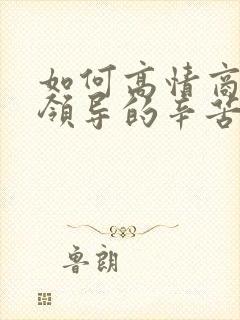 如何高情商
领导的辛苦
鲁朗